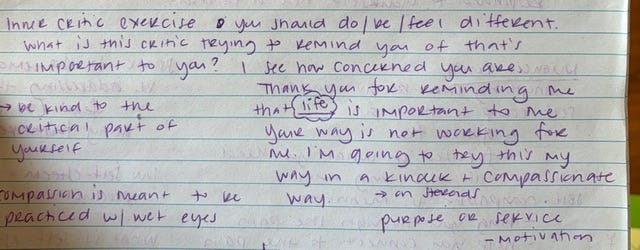 Inner critic exercise you should do/be/feel different.
What is this critic trying to remind you of that's
important to you? I see how concerned you are
Thank you for reminding me
that life is important to me
your way is not working for
me. I'm going to try this my
way in a kinder + compassionate
way. → on steroids
purpose or service
- motivation
→ be kind to the
critical part of
yourself
compassion is meant to be
practiced w/ wet eyes